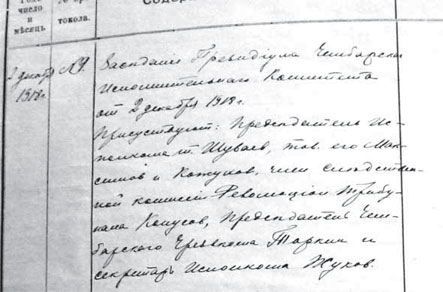 число
и
мѣсяцъ
токола.
2 декабря 1918 г.
№ 4.
Заседание Президиума Чембарского
Исполнительного Комитета
от 2 декабря 1918 г.
Присутствуют: Председатель Ис-
полкома т. Шуваев, тов. его Мак-
симов и Кожунов, член следствен-
ной комисии Революціон. Трибу-
нала Конусов, Председатель Чем-
барского Еревкома Таркин и
секретарь Исполкома Жуков.